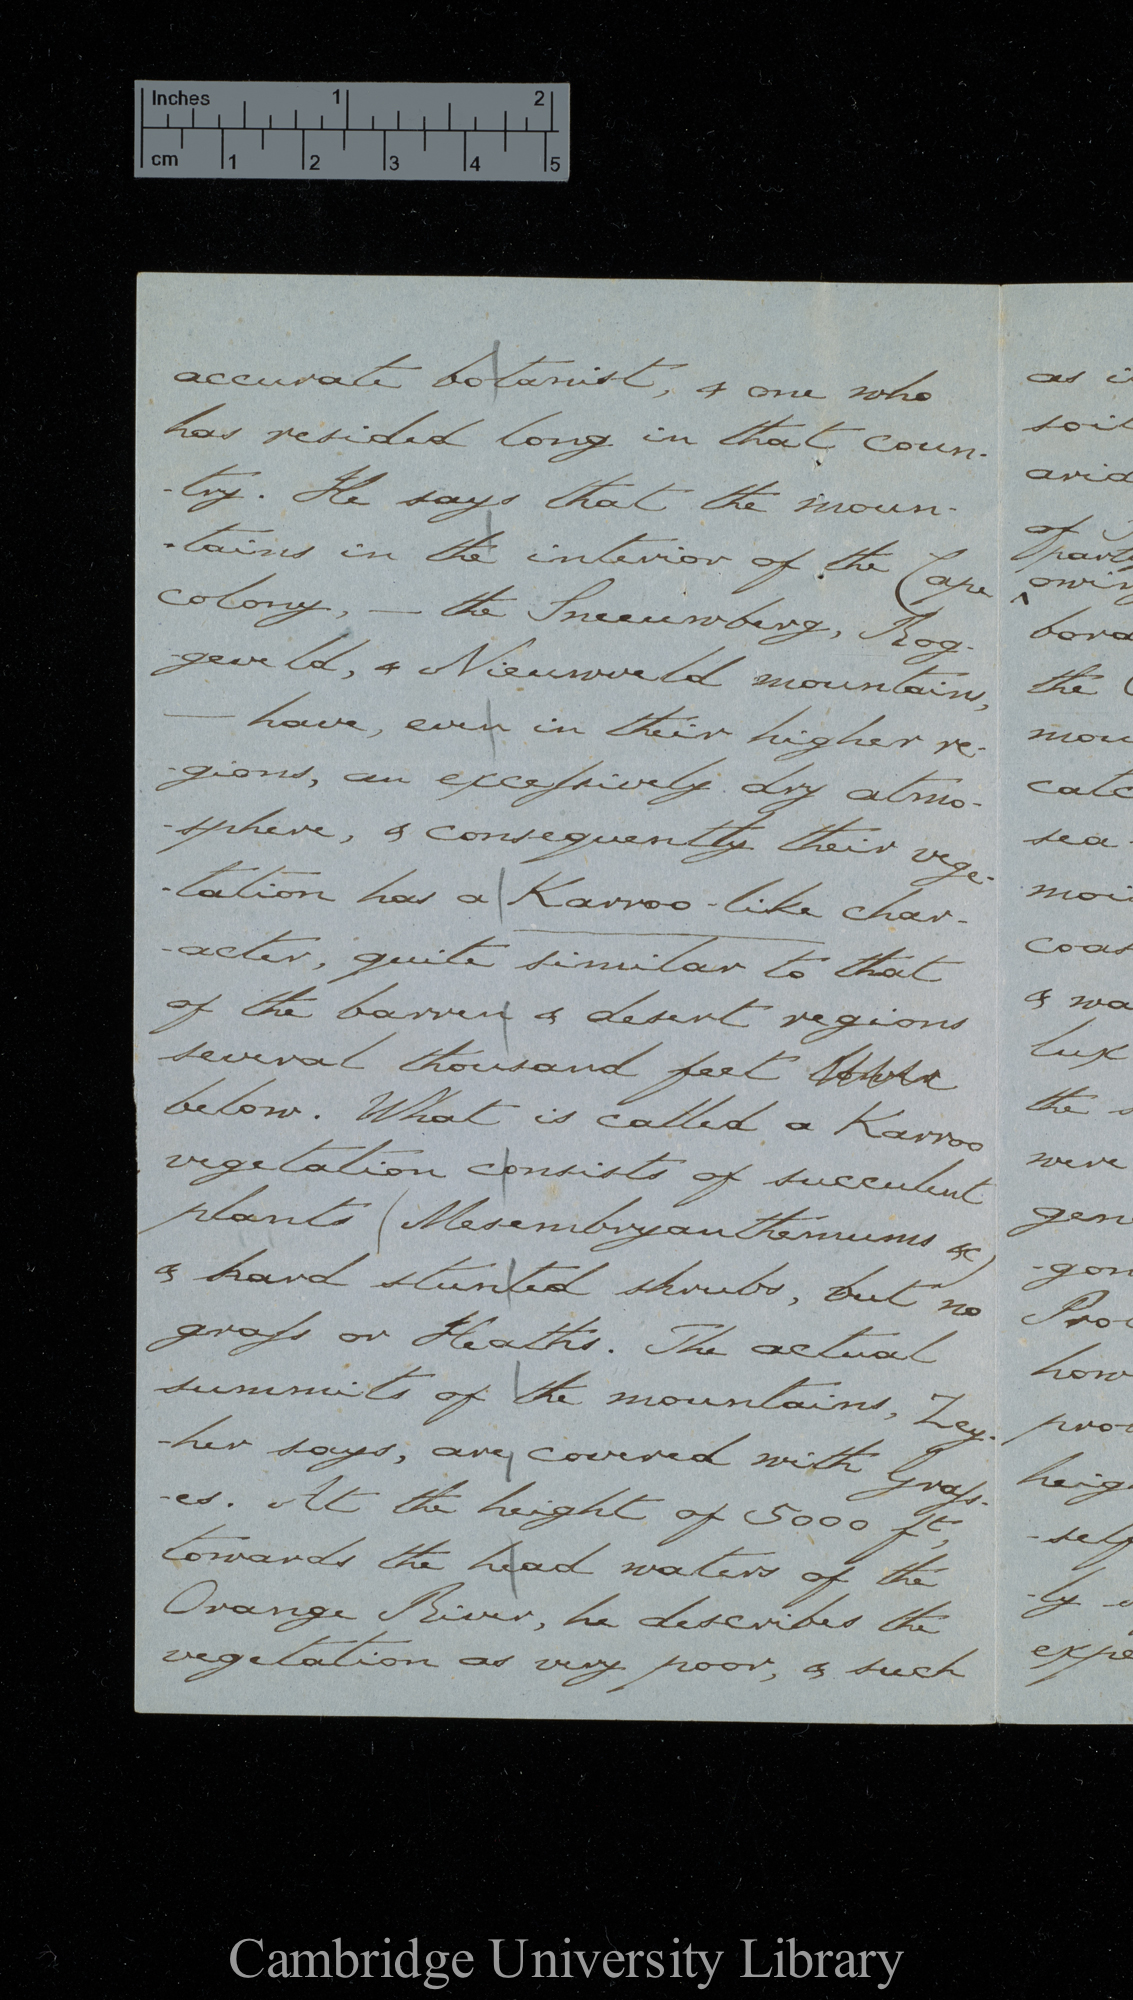 Inches 1 2
cm 1 2 3 4 5
accurate botanist, & one who
has resided long in that coun-
-try. He says that the moun-
-tains in the interior of the Cape
colony, — the Sneeuwberg, Rog-
-geveld, & Nieuwveld mountains,
— have, even in their higher re-
-gions, an excessively dry atmo-
-sphere, & consequently their vege-
-tation has a Karroo-like char-
-acter, quite similar to that
of the barren & desert regions
several thousand feet
below. What is called a Karroo
vegetation consists of succulent
plants (Mesembryanthemums &c)
& hard stunted shrubs, but no
grass or Heaths. The actual
summits of the mountains, Zey-
-her says, are covered with Grass-
-es. At the height of 5000 ft,
towards the head waters of the
Orange River, he describes the
vegetation as very poor, & such
as i
soil
arid
of
party
owing
bord
the
mou
catc
sea
moi
coas
& wa
lux
the s
were
gen
-gon
Pro
how
prov
heig
-self
-ly
expe
Cambridge University Library